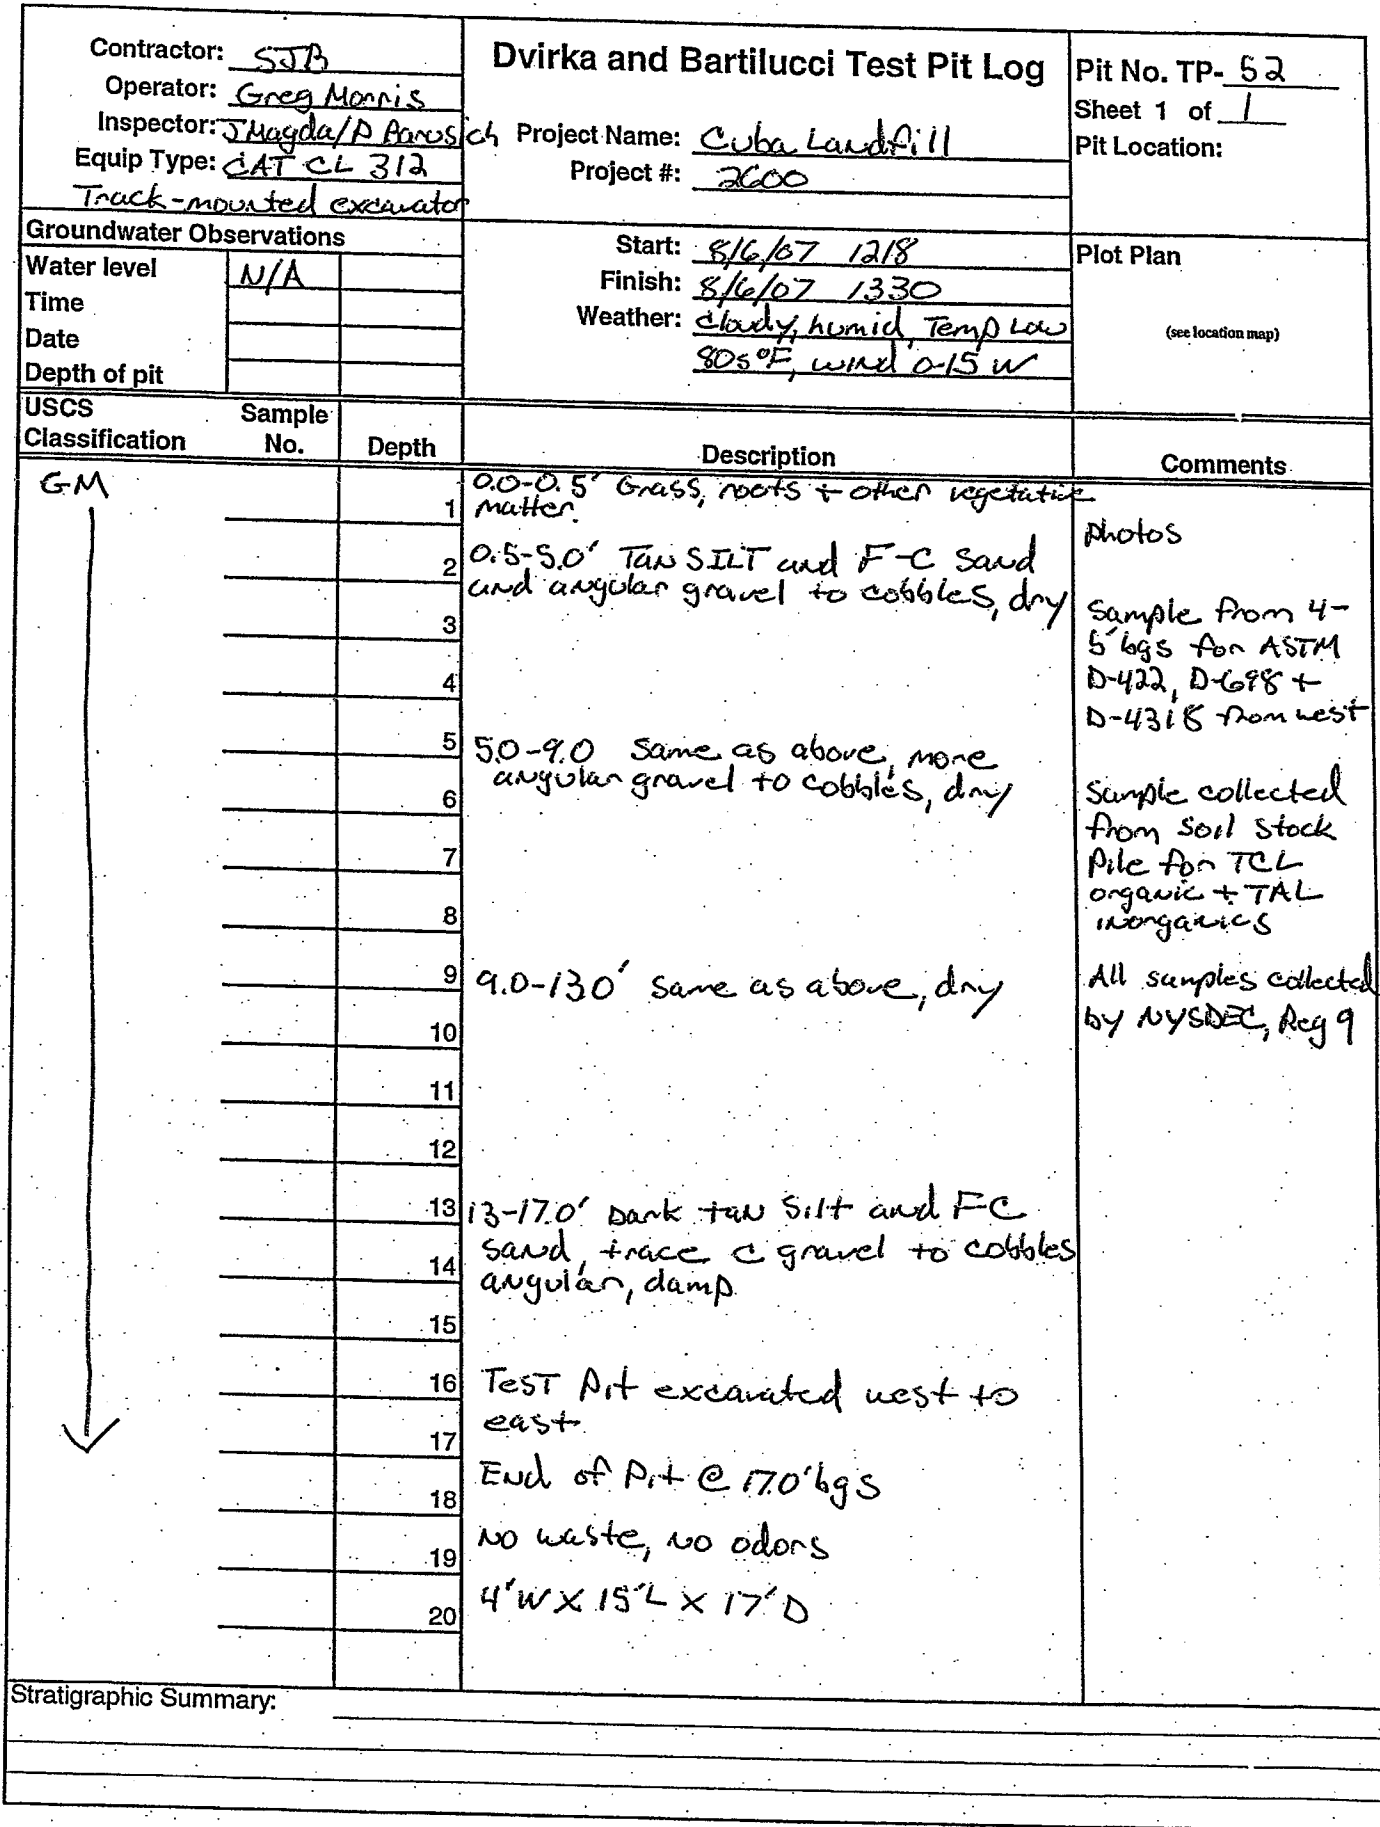 Contractor: SJB
Operator: Greg Morris
Inspector: J Magda/P
Equip Type: CAT CL 312
Track-mounted excavator
Dvirka and Bartilucci Test Pit Log
Project Name: Cuba Landfill
Project #: 2600
Pit No. TP- 52
Sheet 1 of 1
Pit Location:
Groundwater Observations
Water level N/A
Time
Date
Depth of pit
Start: 8/6/07 1218
Finish: 8/6/07 1330
Weather: Cloudy, humid, Temp Low
80s °F, wind 0-15 W
Plot Plan
(see location map)
USCS
Classification
Sample
No.
Depth
Description
Comments
GM
1
2
3
4
5
6
7
8
9
10
11
12
13
14
15
16
17
18
19
20
0.0-0.5' Grass, roots + other vegetative
matter.
0.5-5.0' Tan SILT and F-C Sand
and angular gravel to cobbles, dry
5.0-9.0 Same as above, more
angular gravel to cobbles, dry
9.0-13.0' same as above, dry
13-17.0' Dark tan Silt and FC
sand, trace c gravel to cobbles
angular, damp
Test Pit excavated west to
east
End of Pit @ 17.0' bgs
No waste, no odors
4'W X 15'L X 17'D
photos
Sample from 4-
5' bgs for ASTM
D-422, D-698 +
D-4318 from west
Sample collected
from Soil Stock
Pile for TCL
organic + TAL
inorganics
All samples collected
by NYSDEC, Reg 9
Stratigraphic Summary: